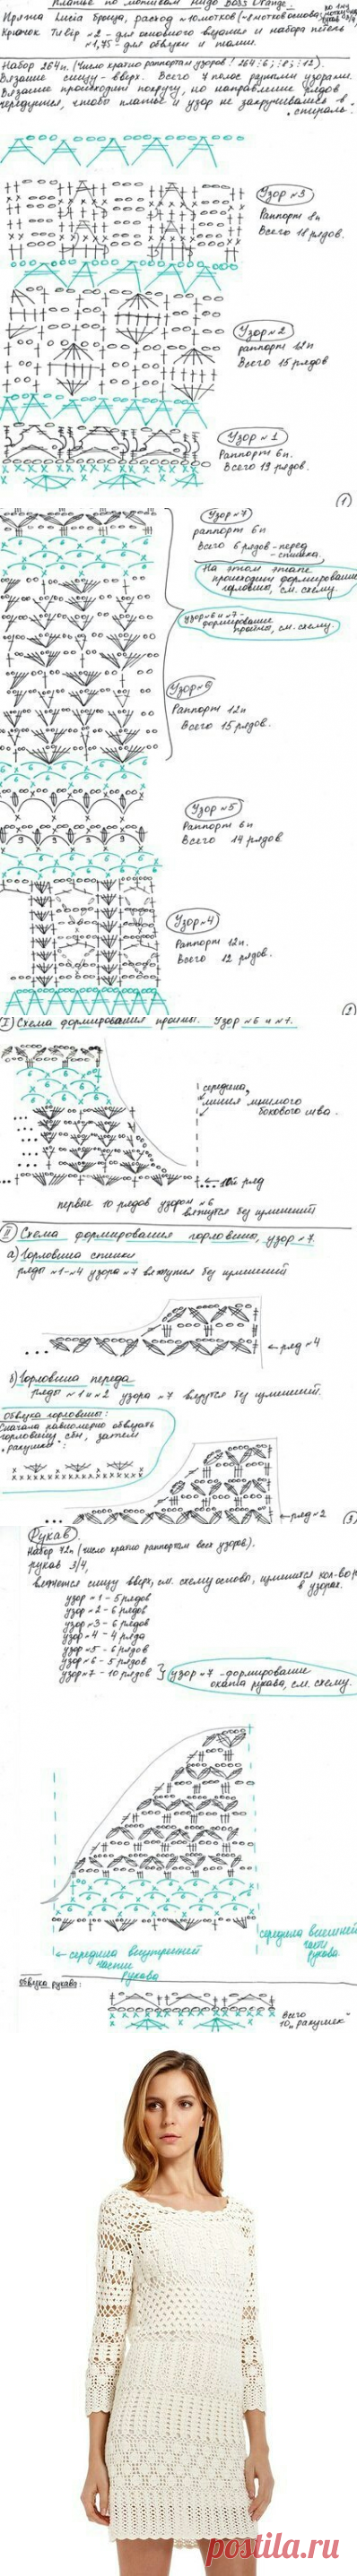 Платье по мотивам Hugo Boss Orange.
Пряжа Lucia бренда, расход ≈10 мотков (~8 мотков основа,
Крючок Tulip №2 - для основного вязания и набора петель
№1,75 - для обвязки и
Набор 264п. (число кратно раппортам узоров! 264:6; :8; :12).
Вязание снизу-вверх. Всего 7 полос разными узорами.
Вязание происходит по кругу, но направление рядов
чередуется, чтобы платье и узор не закручивались в
спираль.
Узор №3
Раппорт 8п
Всего 18 рядов.
Узор №2
раппорт 12п
Всего 15 рядов
Узор №1
Раппорт 6п.
Всего 19 рядов.
1
Узор №7
раппорт 6п
Всего 6 рядов - перед
- спинка,
На этом этапе
происходит формирование
горловины, см. схему.
узор №6 и №7 -
формирование
проймы, см. схему.
Узор №6
Раппорт 12п
Всего 15 рядов.
Узор №5
Раппорт 6п
Всего 14 рядов
Узор №4
Раппорт 12п.
Всего 12 рядов.
2
I Схема формирования проймы. Узор №6 и №7.
середина,
линия мнимого
бокового шва.
10й ряд
первые 10 рядов узором №6
вяжутся без изменений
II Схема формирования горловины, узор №7.
а) Горловина спинки
ряды №1-№4 узора №7 вяжутся без изменений
ряд №4
б) Горловина переда
ряды №1 и №2 узора №7 вяжутся без изменений.
Обвязка горловины:
Сначала равномерно обвязать
горловину сбн, затем
"ракушки":
ряд №2
3
Рукав
Набор 72п (число кратно раппортам всех узоров).
рукав 3/4,
вяжется снизу вверх, см. схему основы, изменится кол-во рядов
в узорах.
узор №1 - 5 рядов
узор №2 - 6 рядов
узор №3 - 6 рядов
узор №4 - 4 ряда
узор №5 - 6 рядов
узор №6 - 5 рядов
узор №7 - 10 рядов } узор №7 - формирование
оката рукава, см. схему.
середина внутренней
части
рукава
середина внешней
части
рукава
Обвязка рукава:
Всего
10 "ракушек"
postila.ru